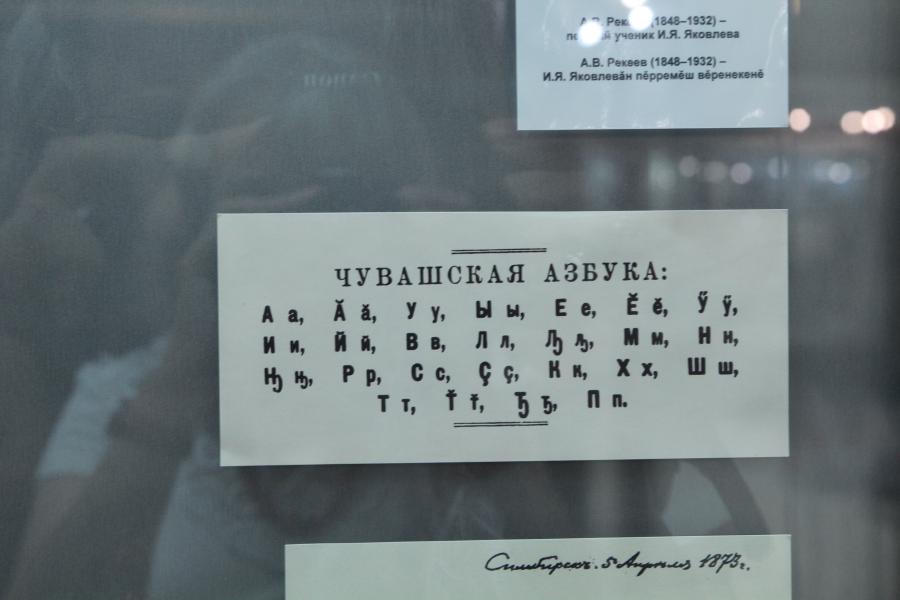 А.В. (1848–1932) –
ученик И.Я. Яковлева
А.В. Рекеев (1848–1932) –
И.Я. Яковлевӑн пӗрремӗш вӗренекенӗ
ЧУВАШСКАЯ АЗБУКА:
А а, Ӑ ӑ, У у, Ы ы, Е е, Ӗ ӗ, Ў ў,
И и, Й й, В в, Л л, Ԡ ԡ, М м, Н н,
Ԣ ԣ, Р р, С с, Ҫ ҫ, К к, Х х, Ш ш,
Т т, Т̌ т̌, Ђ ђ, П п.
Симбирскъ. 5 Апрѣля 1873 г.